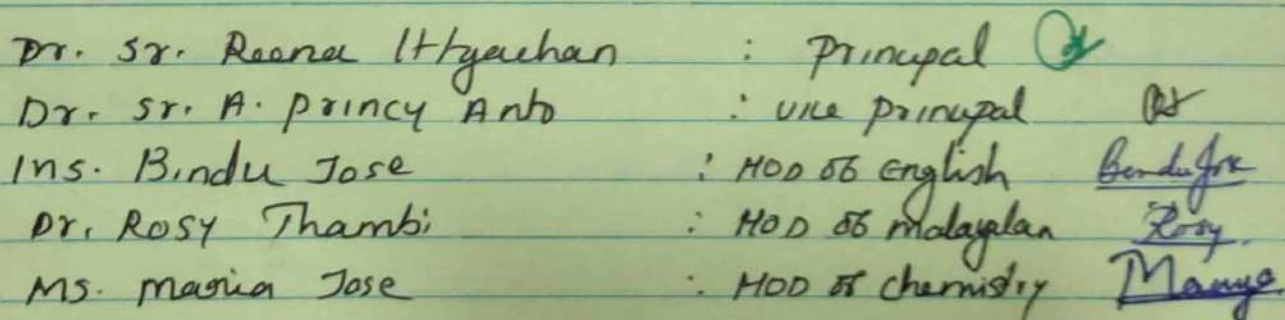 Dr. Sr. Reena Ittyachan : Principal
Dr. Sr. A. Princy Anto : Vice Principal
Ms. Bindu Jose : HOD of English Bindu Jose
Dr. Rosy Thambi : HOD of Malayalan Rosy.
Ms. Maria Jose : HOD of Chemistry